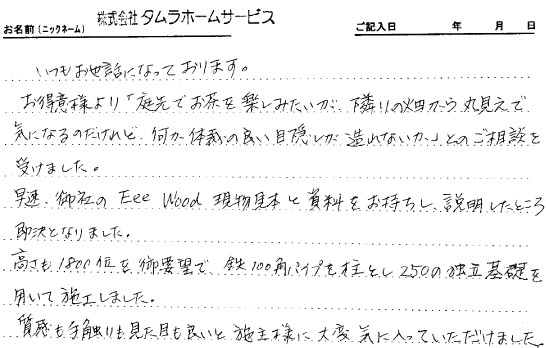 お名前(ニックネーム) 株式会社 タムラホームサービス ご記入日 年 月 日
いつもお世話になっております。
お得意様より「庭先でお茶を楽しみたいが、隣りの畑から丸見えで
気になるのだけれど、何か体裁の良い目隠しが造れないか」とのご相談を
受けました。
早速、御社の Eee Wood 現物見本と資料をお持ちし、説明したところ
即決となりました。
高さも1800位を御要望で、鉄100角パイプを柱とし250の独立基礎を
用いて施工しました。
質感も手触りも見た目も良いと施主様に大変気に入っていただけました。